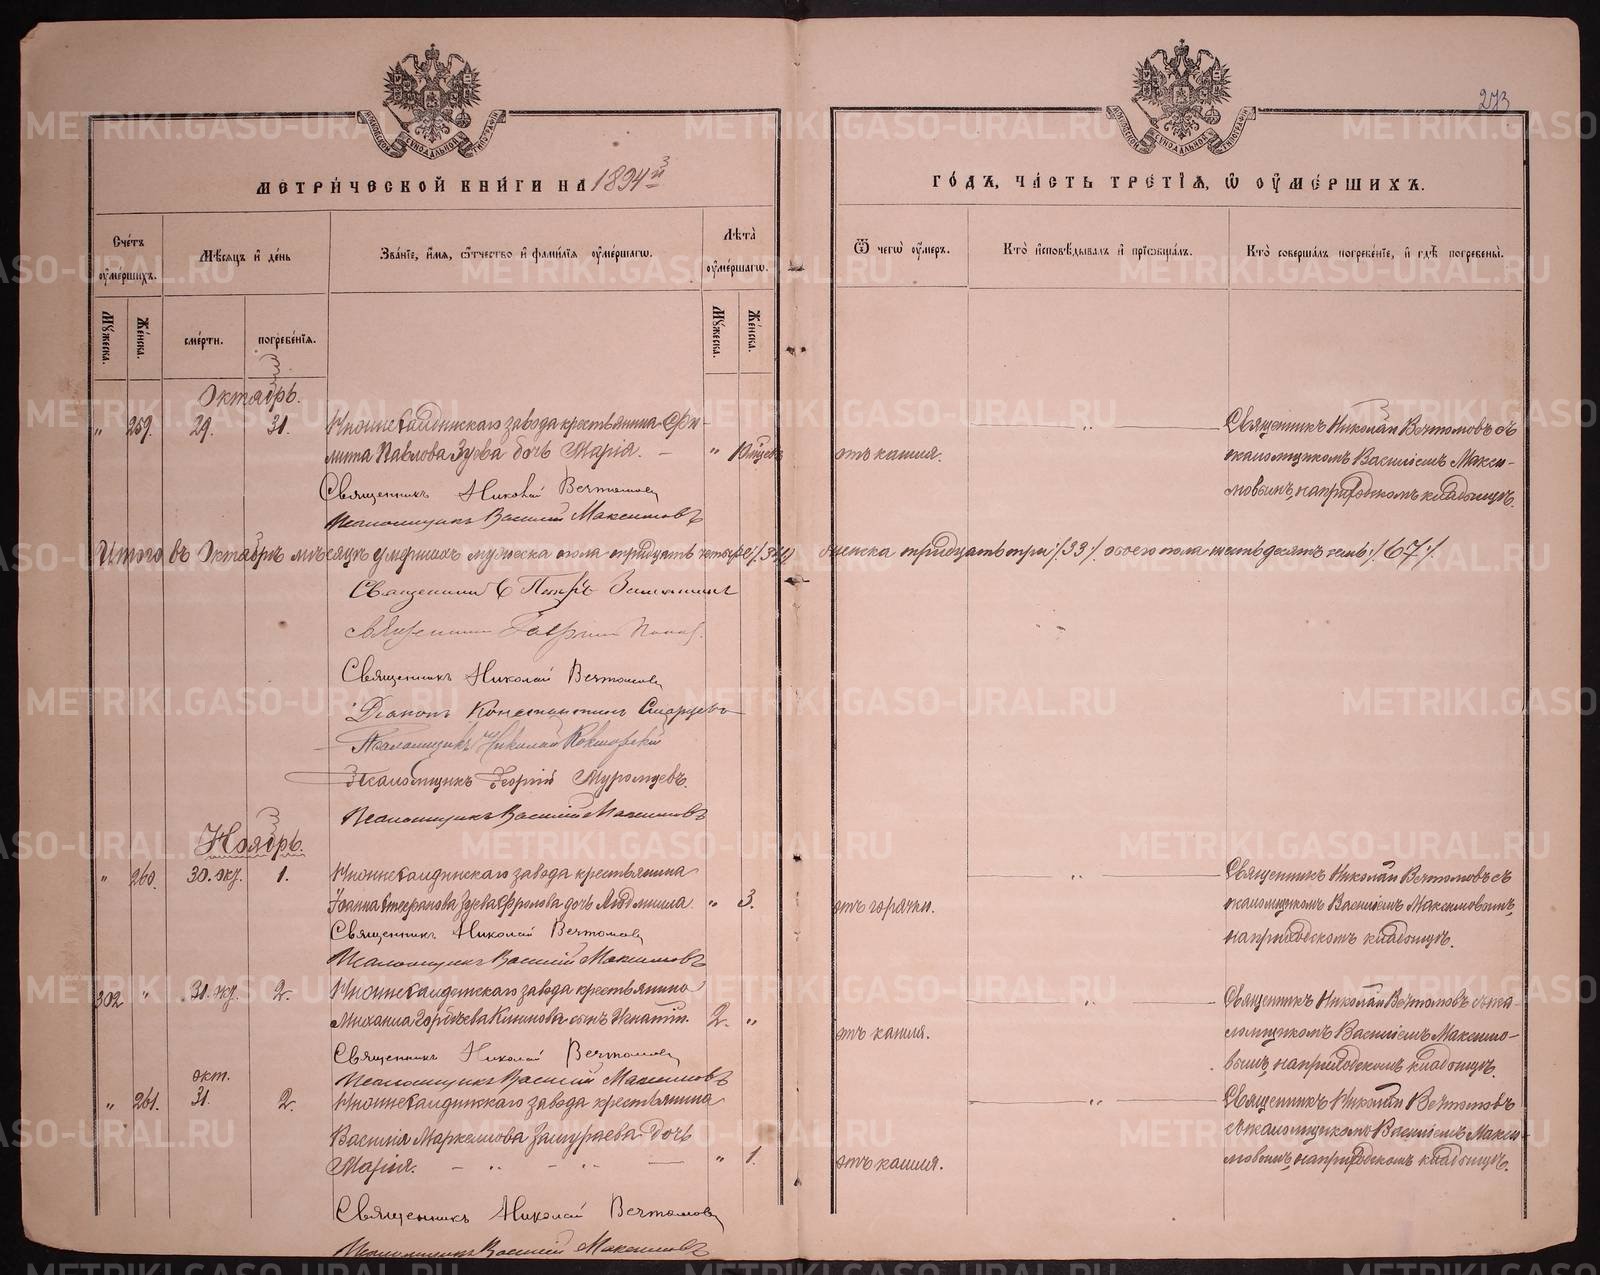 273
МОСКОВСКОЙ СѴНОДАЛЬНОЙ ТИПОГРАФІИ
МОСКОВСКОЙ СѴНОДАЛЬНОЙ ТИПОГРАФІИ
МЕТРИ́ЧЕСКОЙ КНИ́ГИ НА 1894 й
ГО́ДЪ, ЧА́СТЬ ТРЕ́ТІѦ, Ѿ ОУМЕ́РШИХЪ.
Сче́тъ оумершихъ.
Мѣ́сѧцъ и де́нь
Зва́нїе, и́мѧ, ѻ́тчество и фами́лїѧ оуме́ршагѡ.
Лѣ́та оуме́ршагѡ.
Ѿ чегѡ̀ оу́меръ.
Кто̀ исповѣ́дывалъ и прїѡбща́лъ.
Кто̀ соверша́лъ погребе́нїе, и гдѣ̀ погребены̀.
Мꙋ́жеска.
Же́нска.
сме́рти.
погребе́нїѧ.
Мꙋ́жеска.
Же́нска.
Октябрь.
" 259. 29. 31. Нижнесалдинскаго завода крестьянина
Павлова Зуева дочь Марія. — "
отъ кашля.
Священникъ Николай Вечтомовъ съ
псаломщикомъ Василіемъ Макси-
мовымъ, на приходскомъ кладбищѣ.
Священникъ Николай Вечтомовъ
Псаломщикъ Василій Максимовъ
Итого въ Октябрѣ мѣсяцѣ умершихъ мужеска пола тридцать четыре /34/ женска тридцать три /33/. обоего пола шестьдесятъ семь /67/.
Священникъ Петръ
Священникъ
Священникъ Николай Вечтомовъ
Діаконъ Константинъ
Псаломщикъ Николай
Псаломщикъ Георгій Муромцевъ.
Псаломщикъ Василій Максимовъ
Ноябрь.
" 260. 30. окт. 1. Нижнесалдинскаго завода крестьянина
Іоанна Стефанова Зуева Фролова дочь Людмила. " 3.
отъ горячки.
Священникъ Николай Вечтомовъ съ
псаломщикомъ Василіемъ Максимовымъ,
на приходскомъ кладбищѣ.
Священникъ Николай Вечтомовъ
Псаломщикъ Василій Максимовъ
302 " 31. окт. 2. Нижнесалдинскаго завода крестьянина
Михаила Горбунова Климова сынъ Игнатій. 2. "
отъ кашля.
Священникъ Николай Вечтомовъ съ пса-
ломщикомъ Василіемъ Максимо-
вымъ, на приходскомъ кладбищѣ.
Священникъ Николай Вечтомовъ
Псаломщикъ Василій Максимовъ
окт.
" 261. 31. 2. Нижнесалдинскаго завода крестьянина
Василія Маркелова Замураева дочь
Марія. " 1.
отъ кашля.
Священникъ Николай Вечтомовъ
съ псаломщикомъ Василіемъ Макси-
мовымъ, на приходскомъ кладбищѣ.
Священникъ Николай Вечтомовъ
Псаломщикъ Василій Максимовъ
METRIKI.GASO-URAL.RU